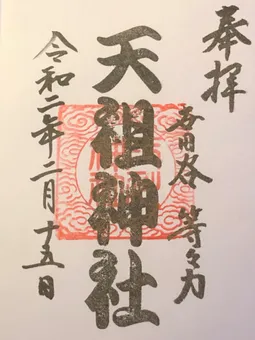 奉拝
世田谷 等々力
天祖神社
令和二年二月十五日